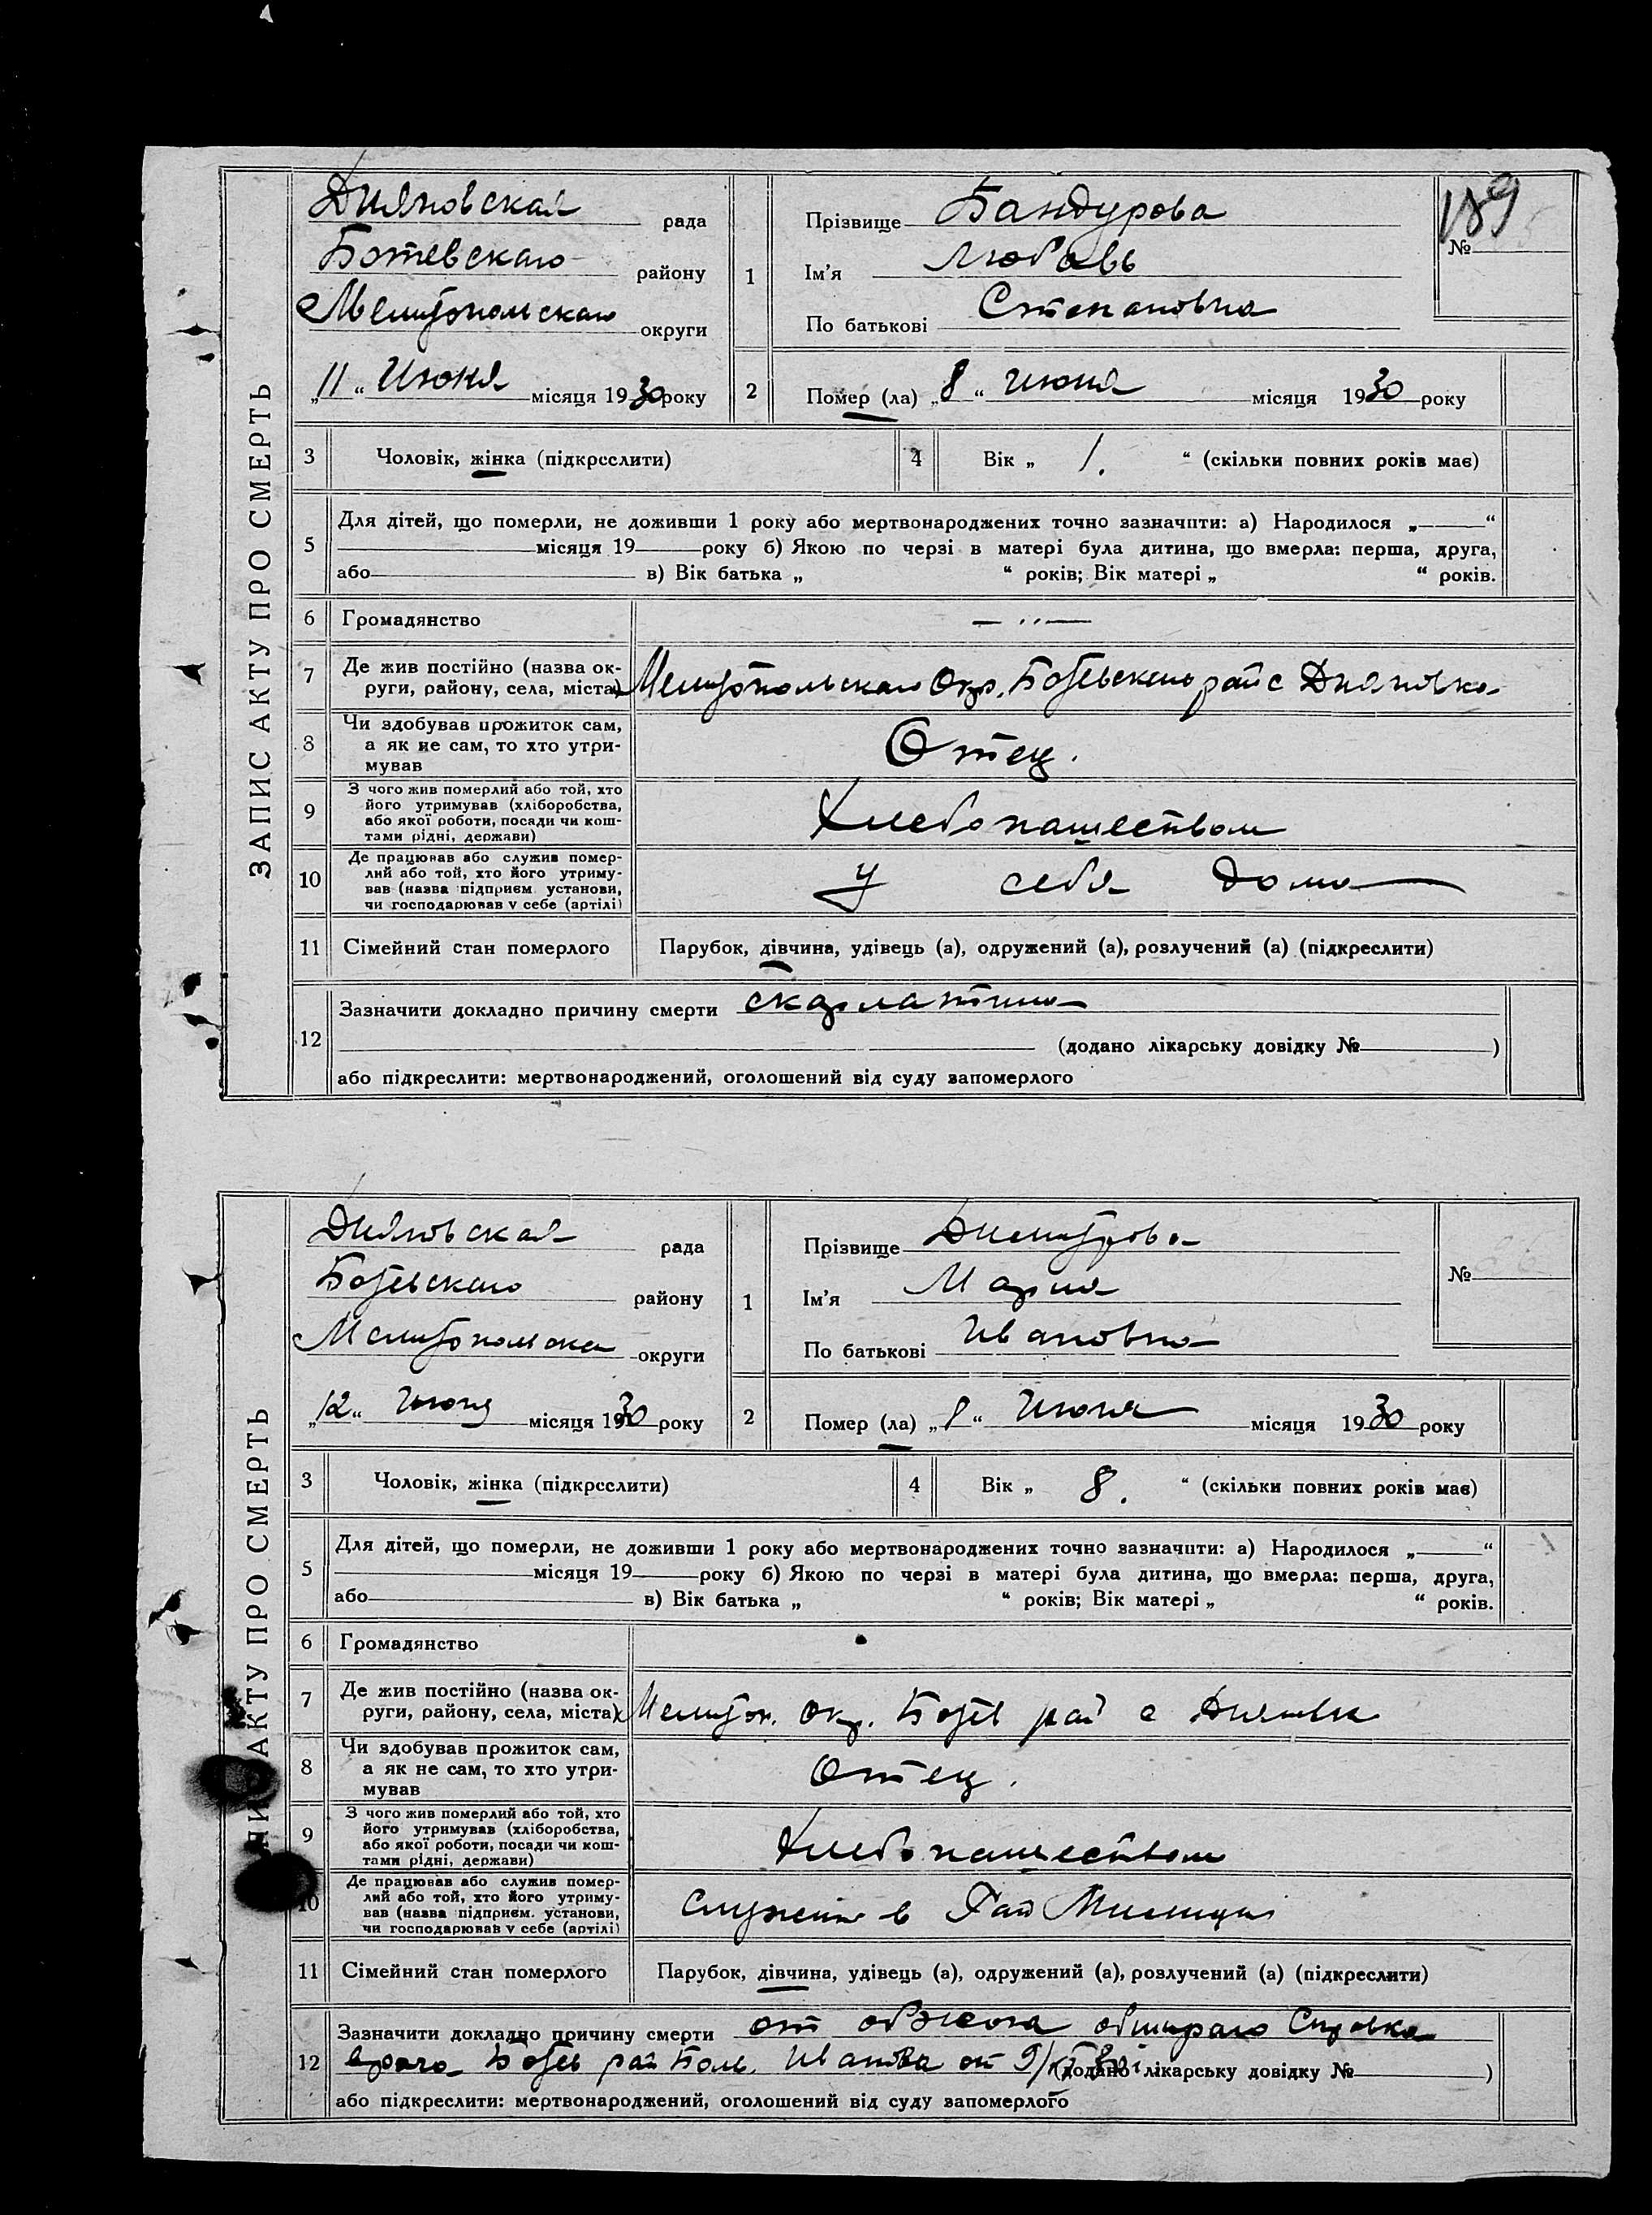 ЗАПИС АКТУ ПРО СМЕРТЬ
Дияновская рада
Ботевскаго району
Мелитопольскаго округи
„11“ Июня місяця 1930 року
1
Прізвище Бандурова
Ім'я Любовь
По батькові Степановна
189
№
2
Помер (ла) „8“ июня місяця 1930 року
3 Чоловік, жінка (підкреслити)
4 Вік „ 1. “ (скільки повних років має)
5 Для дітей, що померли, не доживши 1 року або мертвонароджених точно зазначити: а) Народилося „ “
місяця 19 року б) Якою по черзі в матері була дитина, що вмерла: перша, друга,
або в) Вік батька „ “ років; Вік матері „ “ років.
6 Громадянство — ,, —
7 Де жив постійно (назва ок-
руги, району, села, міста) Мелитопольскаго Окр. Ботевскаго рай с Дияновка
8 Чи здобував прожиток сам,
а як не сам, то хто утри-
мував
Отец.
9 З чого жив померлий або той, хто
його утримував (хліборобства,
або якої роботи, посади чи кош-
тами рідні, держави)
Хлебопашеством
10 Де працював або служив помер-
лий або той, хто його утриму-
вав (назва підприєм. установи,
чи господарював у себе (артілі)
У себя дома
11 Сімейний стан померлого Парубок, дівчина, удівець (а), одружений (а), розлучений (а) (підкреслити)
12 Зазначити докладно причину смерти скарлатина
(додано лікарську довідку № )
або підкреслити: мертвонароджений, оголошений від суду запомерлого
АКТУ ПРО СМЕРТЬ
Дияновская рада
Ботевскаго району
Мелитопольска округи
„12“ Июня місяця 1930 року
1
Прізвище Димитрова
Ім'я Мария
По батькові Ивановна
№
2
Помер (ла) „8“ Июня місяця 1930 року
3 Чоловік, жінка (підкреслити)
4 Вік „ 8. “ (скільки повних років має)
5 Для дітей, що померли, не доживши 1 року або мертвонароджених точно зазначити: а) Народилося „ “
місяця 19 року б) Якою по черзі в матері була дитина, що вмерла: перша, друга,
або в) Вік батька „ “ років; Вік матері „ “ років.
6 Громадянство
7 Де жив постійно (назва ок-
руги, району, села, міста) Мелитоп. Окр. Ботев рай с Дияновк
8 Чи здобував прожиток сам,
а як не сам, то хто утри-
мував
Отец.
9 З чого жив померлий або той, хто
його утримував (хліборобства,
або якої роботи, посади чи кош-
тами рідні, держави)
Хлебопашеством
10 Де працював або служив помер-
лий або той, хто його утриму-
вав (назва підприєм. установи,
чи господарював у себе (артілі)
в Рай Милиции
11 Сімейний стан померлого Парубок, дівчина, удівець (а), одружений (а), розлучений (а) (підкреслити)
12 Зазначити докладно причину смерти от обжога обшираго Справка
врача Ботев рай Боль. Иванова от
(додано лікарську довідку № )
або підкреслити: мертвонароджений, оголошений від суду запомерлого